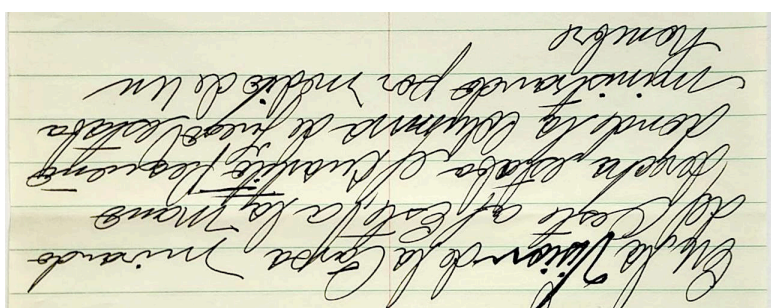 En la Vision de la Carpa mirando
del Oeste al Este, a la mano
derecha estaba el cuartito pequeño
donde la Columna de fuego estaba
ministrando por medio de un
hombre